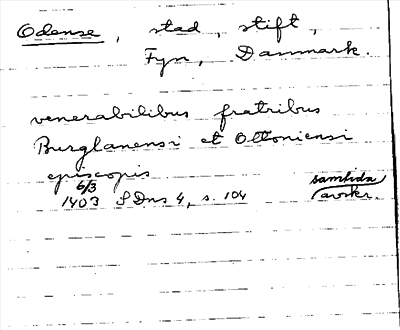 Odense, stad, stift,
Fyn, Danmark.
venerabilibus fratribus
Burglanensi et Ottoniensi
episcopis
6/3
1403 SDns 4, s. 104
samtida
avskr.